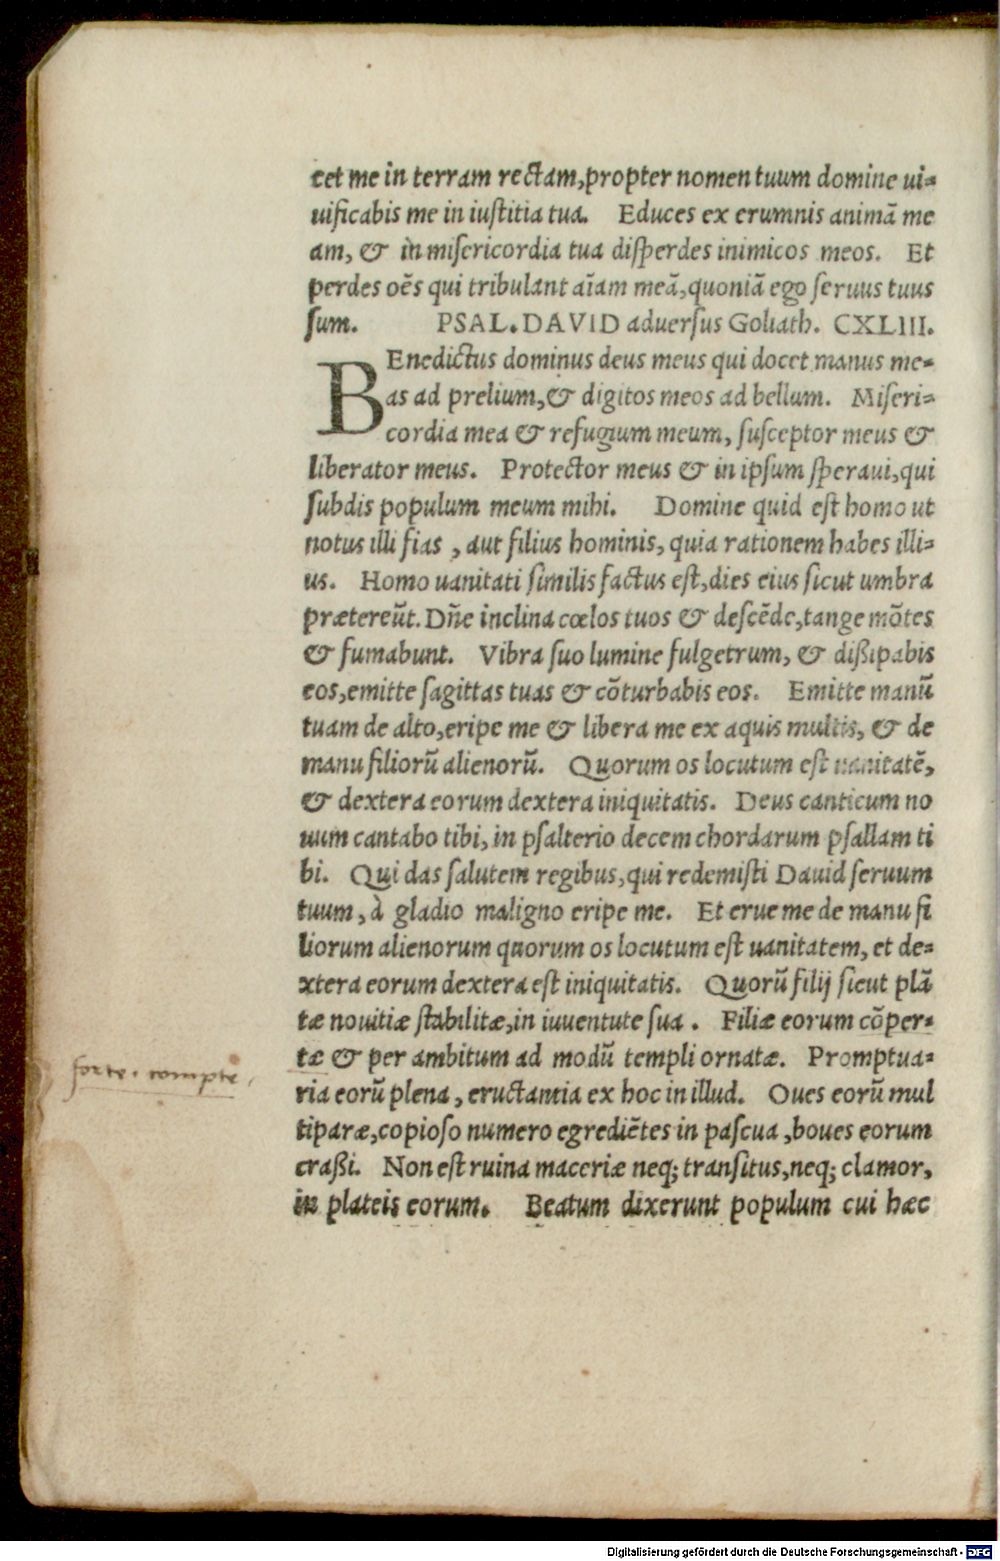 cet me in terram rectam, propter nomen tuum domine ui-
uificabis me in iuſtitia tua. Educes ex erumnis animā me
am, & in miſericordia tua diſperdes inimicos meos. Et
perdes oēs qui tribulant aīam meā, quoniā ego ſeruus tuus
ſum. PSAL. DAVID aduerſus Goliath. CXLIII.
BEnedictus dominus deus meus qui docet manus me-
as ad prelium, & digitos meos ad bellum. Miſeri-
cordia mea & refugium meum, ſuſceptor meus &
liberator meus. Protector meus & in ipſum ſperaui, qui
ſubdis populum meum mihi. Domine quid eſt homo ut
notus illi fias, aut filius hominis, quia rationem habes illi-
us. Homo uanitati ſimilis factus eſt, dies eius ſicut umbra
prætereūt. Dñe inclina cœlos tuos & deſcēde, tange mōtes
& fumabunt. Vibra ſuo lumine fulgetrum, & dißipabis
eos, emitte ſagittas tuas & cōturbabis eos. Emitte manū
tuam de alto, eripe me & libera me ex aquis multis, & de
manu filiorū alienorū. Quorum os locutum eſt uanitatē,
& dextera eorum dextera iniquitatis. Deus canticum no
uum cantabo tibi, in pſalterio decem chordarum pſallam ti
bi. Qui das ſalutem regibus, qui redemiſti Dauid ſeruum
tuum, à gladio maligno eripe me. Et erue me de manu fi
liorum alienorum quorum os locutum eſt uanitatem, et de-
xtera eorum dextera eſt iniquitatis. Quorū filij ſicut plā
tæ nouitiæ ſtabilitæ, in iuuentute ſua. Filiæ eorum cōper-
tæ & per ambitum ad modū templi ornatæ. Promptua-
forte. compte.
ria eorū plena, eructantia ex hoc in illud. Oues eorū mul
tiparæ, copioſo numero egrediētes in paſcua, boues eorum
craßi. Non eſt ruina maceriæ neq; tranſitus, neq; clamor,
in plateis eorum. Beatum dixerunt populum cui hæc
Digitalisierung gefördert durch die Deutsche Forschungsgemeinschaft - DFG